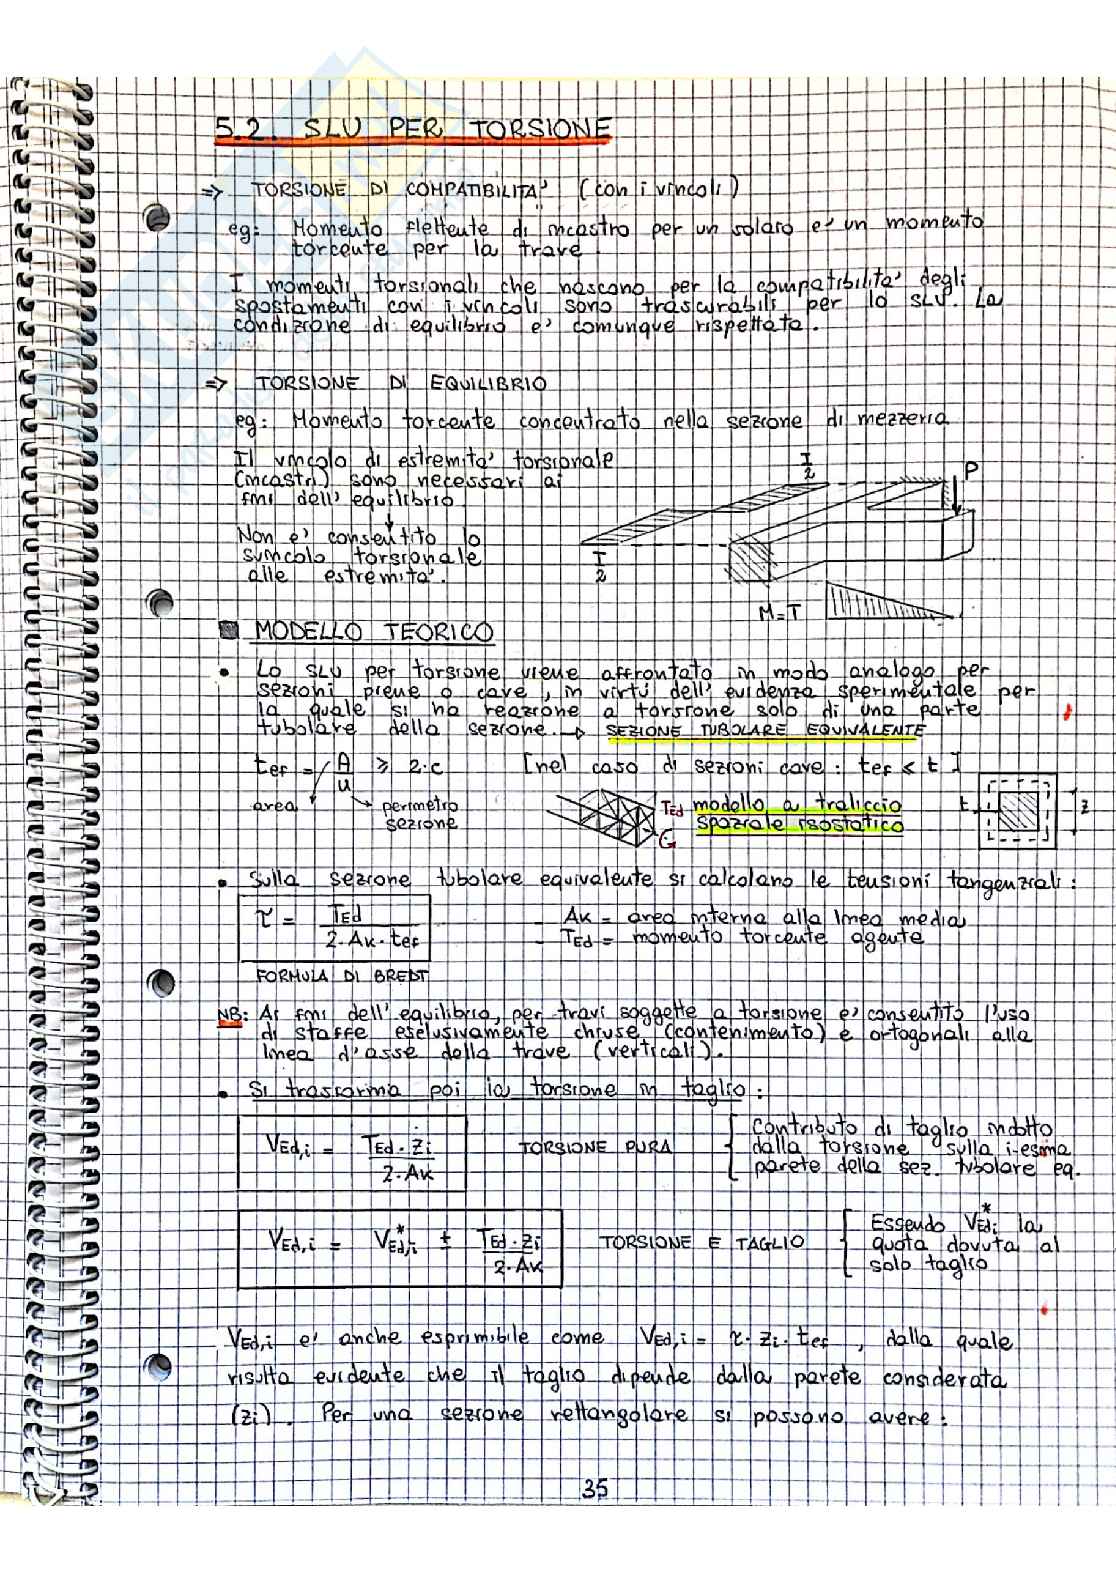 5.2. SLU PER TORSIONE
=> TORSIONE DI COMPATIBILITA' (con i vincoli)
eg: Momento flettente di incastro per un solaio e' un momento
torcente per la trave.
I momenti torsionali che nascono per la compatibilita' degli
spostamenti con i vincoli sono trascurabili per lo SLU. La
condizione di equilibrio e' comunque rispettata.
=> TORSIONE DI EQUILIBRIO
eg: Momento torcente concentrato nella sezione di mezzeria
Il vincolo di estremita' torsionale
(incastri) sono necessari ai
fini dell'equilibrio
Non e' consentito lo
svincolo torsionale
alle estremita'.
T/2
P
T/2
M=T
MODELLO TEORICO
• Lo SLU per torsione viene affrontato in modo analogo per
sezioni piene o cave, in virtu' dell'evidenza sperimentale per
la quale si ha reazione a torsione solo di una parte
tubolare della sezione. -> SEZIONE TUBOLARE EQUIVALENTE
tef = A/u ≥ 2·c [nel caso di sezioni cave: tef < t]
area
perimetro
sezione
TEd modello a traliccio
G spaziale isostatico
t
z
• Sulla sezione tubolare equivalente si calcolano le tensioni tangenziali:
τ = TEd / 2·Ak·tef
- Ak = area interna alla linea media
- TEd = momento torcente agente
FORMULA DI BREDT
NB: Ai fini dell'equilibrio, per travi soggette a torsione e' consentito l'uso
di staffe esclusivamente chiuse (contenimento) e ortogonali alla
linea d'asse della trave (verticali).
• Si trasforma poi la torsione in taglio:
VEd,i = TEd·zi / 2·Ak TORSIONE PURA { contributo di taglio indotto
dalla torsione sulla i-esima
parete della sez. tubolare eq.
VEd,i = V*Ed,i ± TEd·zi / 2·Ak TORSIONE E TAGLIO { Essendo V*Ed,i la
quota dovuta al
solo taglio
VEd,i e' anche esprimibile come VEd,i = τ·zi·tef, dalla quale
risulta evidente che il taglio dipende dalla parete considerata
(zi). Per una sezione rettangolare si possono avere:
35